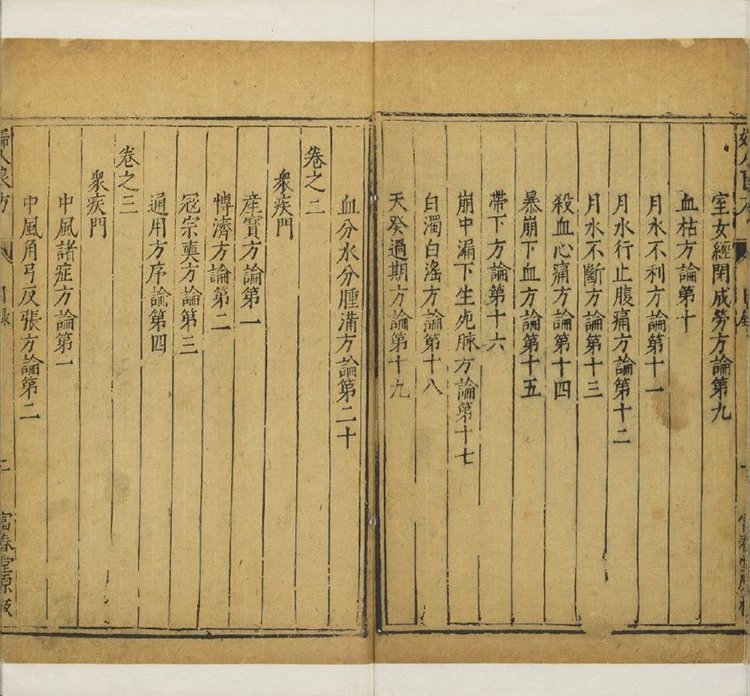 室女經閉成勞方論第九
血枯方論第十
月水不利方論第十一
月水行止腹痛方論第十二
月水不斷方論第十三
殺血心痛方論第十四
暴崩下血方論第十五
帶下方論第十六
崩中漏下生死脉方論第十七
白濁白滛方論第十八
天癸過期方論第十九
血分水分腫滿方論第二十
卷之二
衆疾門
產寶方論第一
愽濟方論第二
冦宗奭方論第三
通用方序論第四
卷之三
衆疾門
中風諸症方論第一
中風角弓反張方論第二
婦人良方
目錄
二
富春堂原板